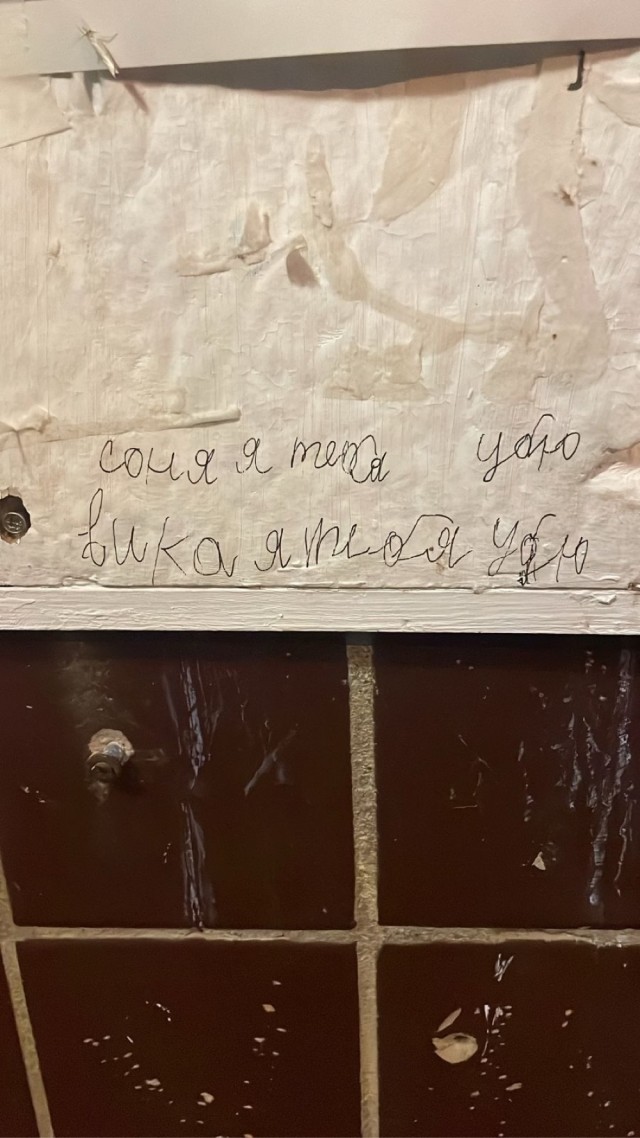 соня я тебя убю
вика я тебя убю